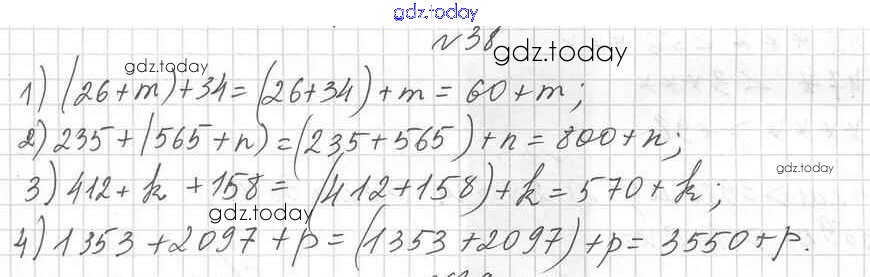 gdz.today
№38
gdz.today
gdz.today
1) (26+m)+34=(26+34)+m=60+m;
2) 235+(565+n)=(235+565)+n=800+n;
gdz.today
3) 412+k+158=(412+158)+k=570+k;
gdz.today
4) 1353+2097+p=(1353+2097)+p=3550+p.